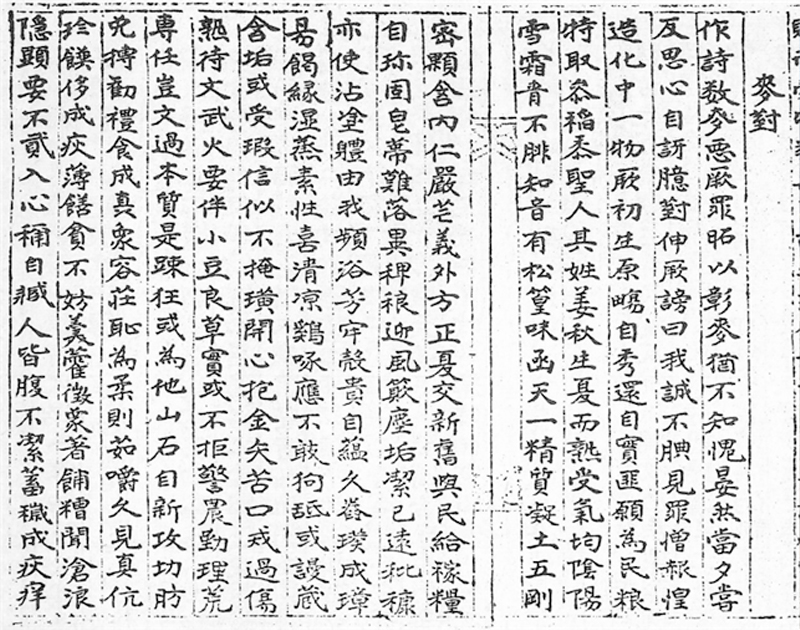 麥對
作詩数麥悪厥罪昭以彰麥猶不知愧晏然當夕甞
反思心自訝臆對伸厥謗曰我誠不腆見罪憎赧惶
造化中一物厥初生原暘自秀還自實匪願為民粮
特取忝稻黍聖人其姓姜秋生夏而熟受氣均陰陽
雪霜青不腓知音有松篁味函天一精質凝土五剛
密顆含內仁嚴芒義外方正夏交新舊與民給稼糧
自珎固皂蔕難落異稗稂逊風簸塵垢潔已遠秕糠
亦使沾塗體由我頻浴芳牢殼貴自蘊久舂璞成璋
昜餲緣湿蒸素性喜清凉鷄啄應不敢狗舐或謾藏
含垢或受瑕信似不掩璜開心抱金矢苦口戎過傷
熟待文武火要伴小豆良草實或不拒警農勤理荒
專任豈文過本質是踈狂或為他山石自新攻切肪
免摶勸禮食成真衆容莊恥為柔則茹嚼久見真伉
珍饌侈成疾薄饍貧不妨羲藿徵象著餔糟聞滄浪
隱顯要不貳入心稱自臧人皆腹不潔蓄穢成疾痒